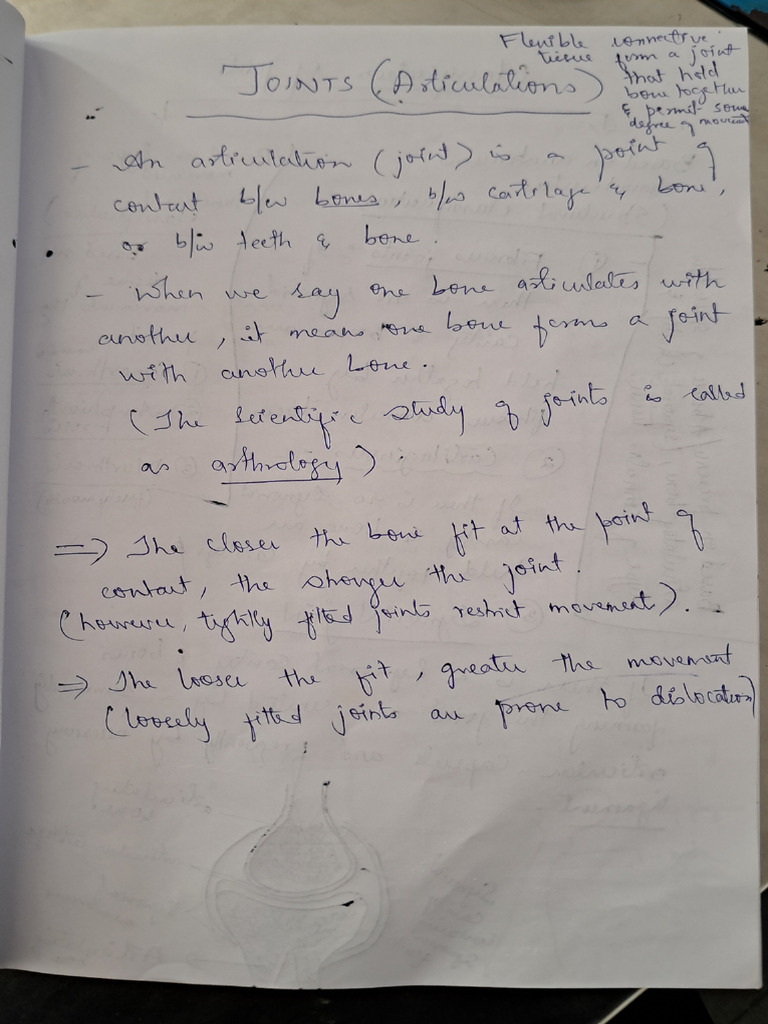 Flexible connective
tissue form a joint
that hold
bone together
& permit some
degree of movement
JOINTS (Articulations)
- An articulation (joint) is a point of
contact b/w bones, b/w cartilage & bone,
or b/w teeth & bone.
- When we say one bone articulates with
another, it means one bone forms a joint
with another bone.
(The scientific study of joints is called
as arthrology).
=> The closer the bone fit at the point of
contact, the stronger the joint.
(however, tightly fitted joints restrict movement).
=> The looser the fit, greater the movement
(loosely fitted joints are prone to dislocation)